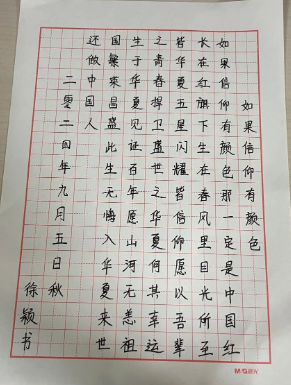 如果信仰有颜色
如果信仰有颜色那一定是中国红
长在红旗下生在春风里目光所至
皆华夏五星闪耀皆信仰愿以吾辈
之青春捍卫盛世之华夏何其幸运
生于华夏见证百年愿山河无恙祖
国繁荣昌盛此生无悔入华夏来世
还做中国人
二零二四年九月五日秋
徐颖书
M&G晨光